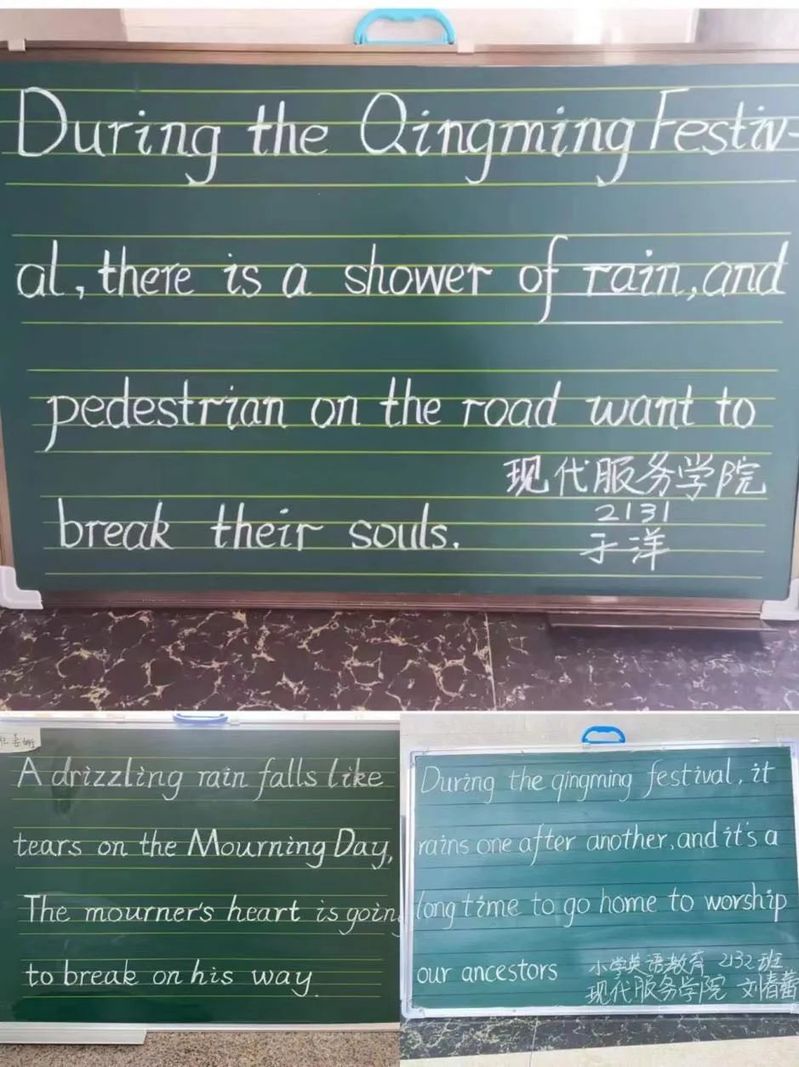 During the Qingming Festiv-
al, there is a shower of rain, and
pedestrian on the road want to
break their souls.
现代服务学院
2131
于洋
A drizzling rain falls like
tears on the Mourning Day,
The mourner's heart is going
to break on his way.
During the qingming festival, it
rains one after another, and it's a
long time to go home to worship
our ancestors
小学英语教育 2132班
现代服务学院